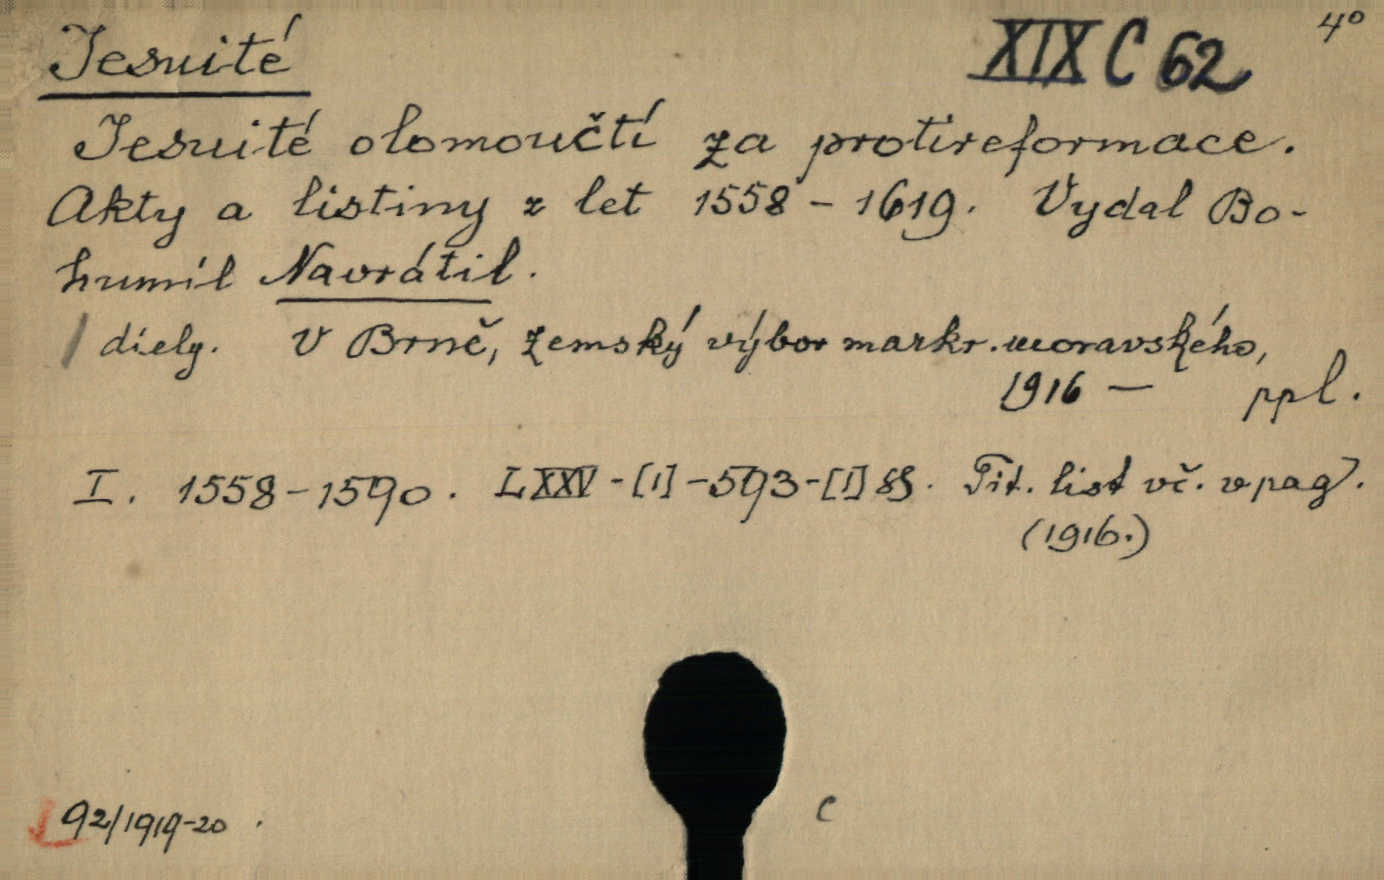 Jesuité
XIX C 62
4°
Jesuité olomoučtí za protireformace.
Akty a listiny z let 1558-1619. Vydal Bo-
humil Navrátil.
1 diely. V Brně, zemský výbor markr. moravského,
1916 — ppl.
I. 1558-1590. LXXV-[1]-593-[1] SS. Tit. list vč. v pag.
(1916.)
92/1919-20.
C